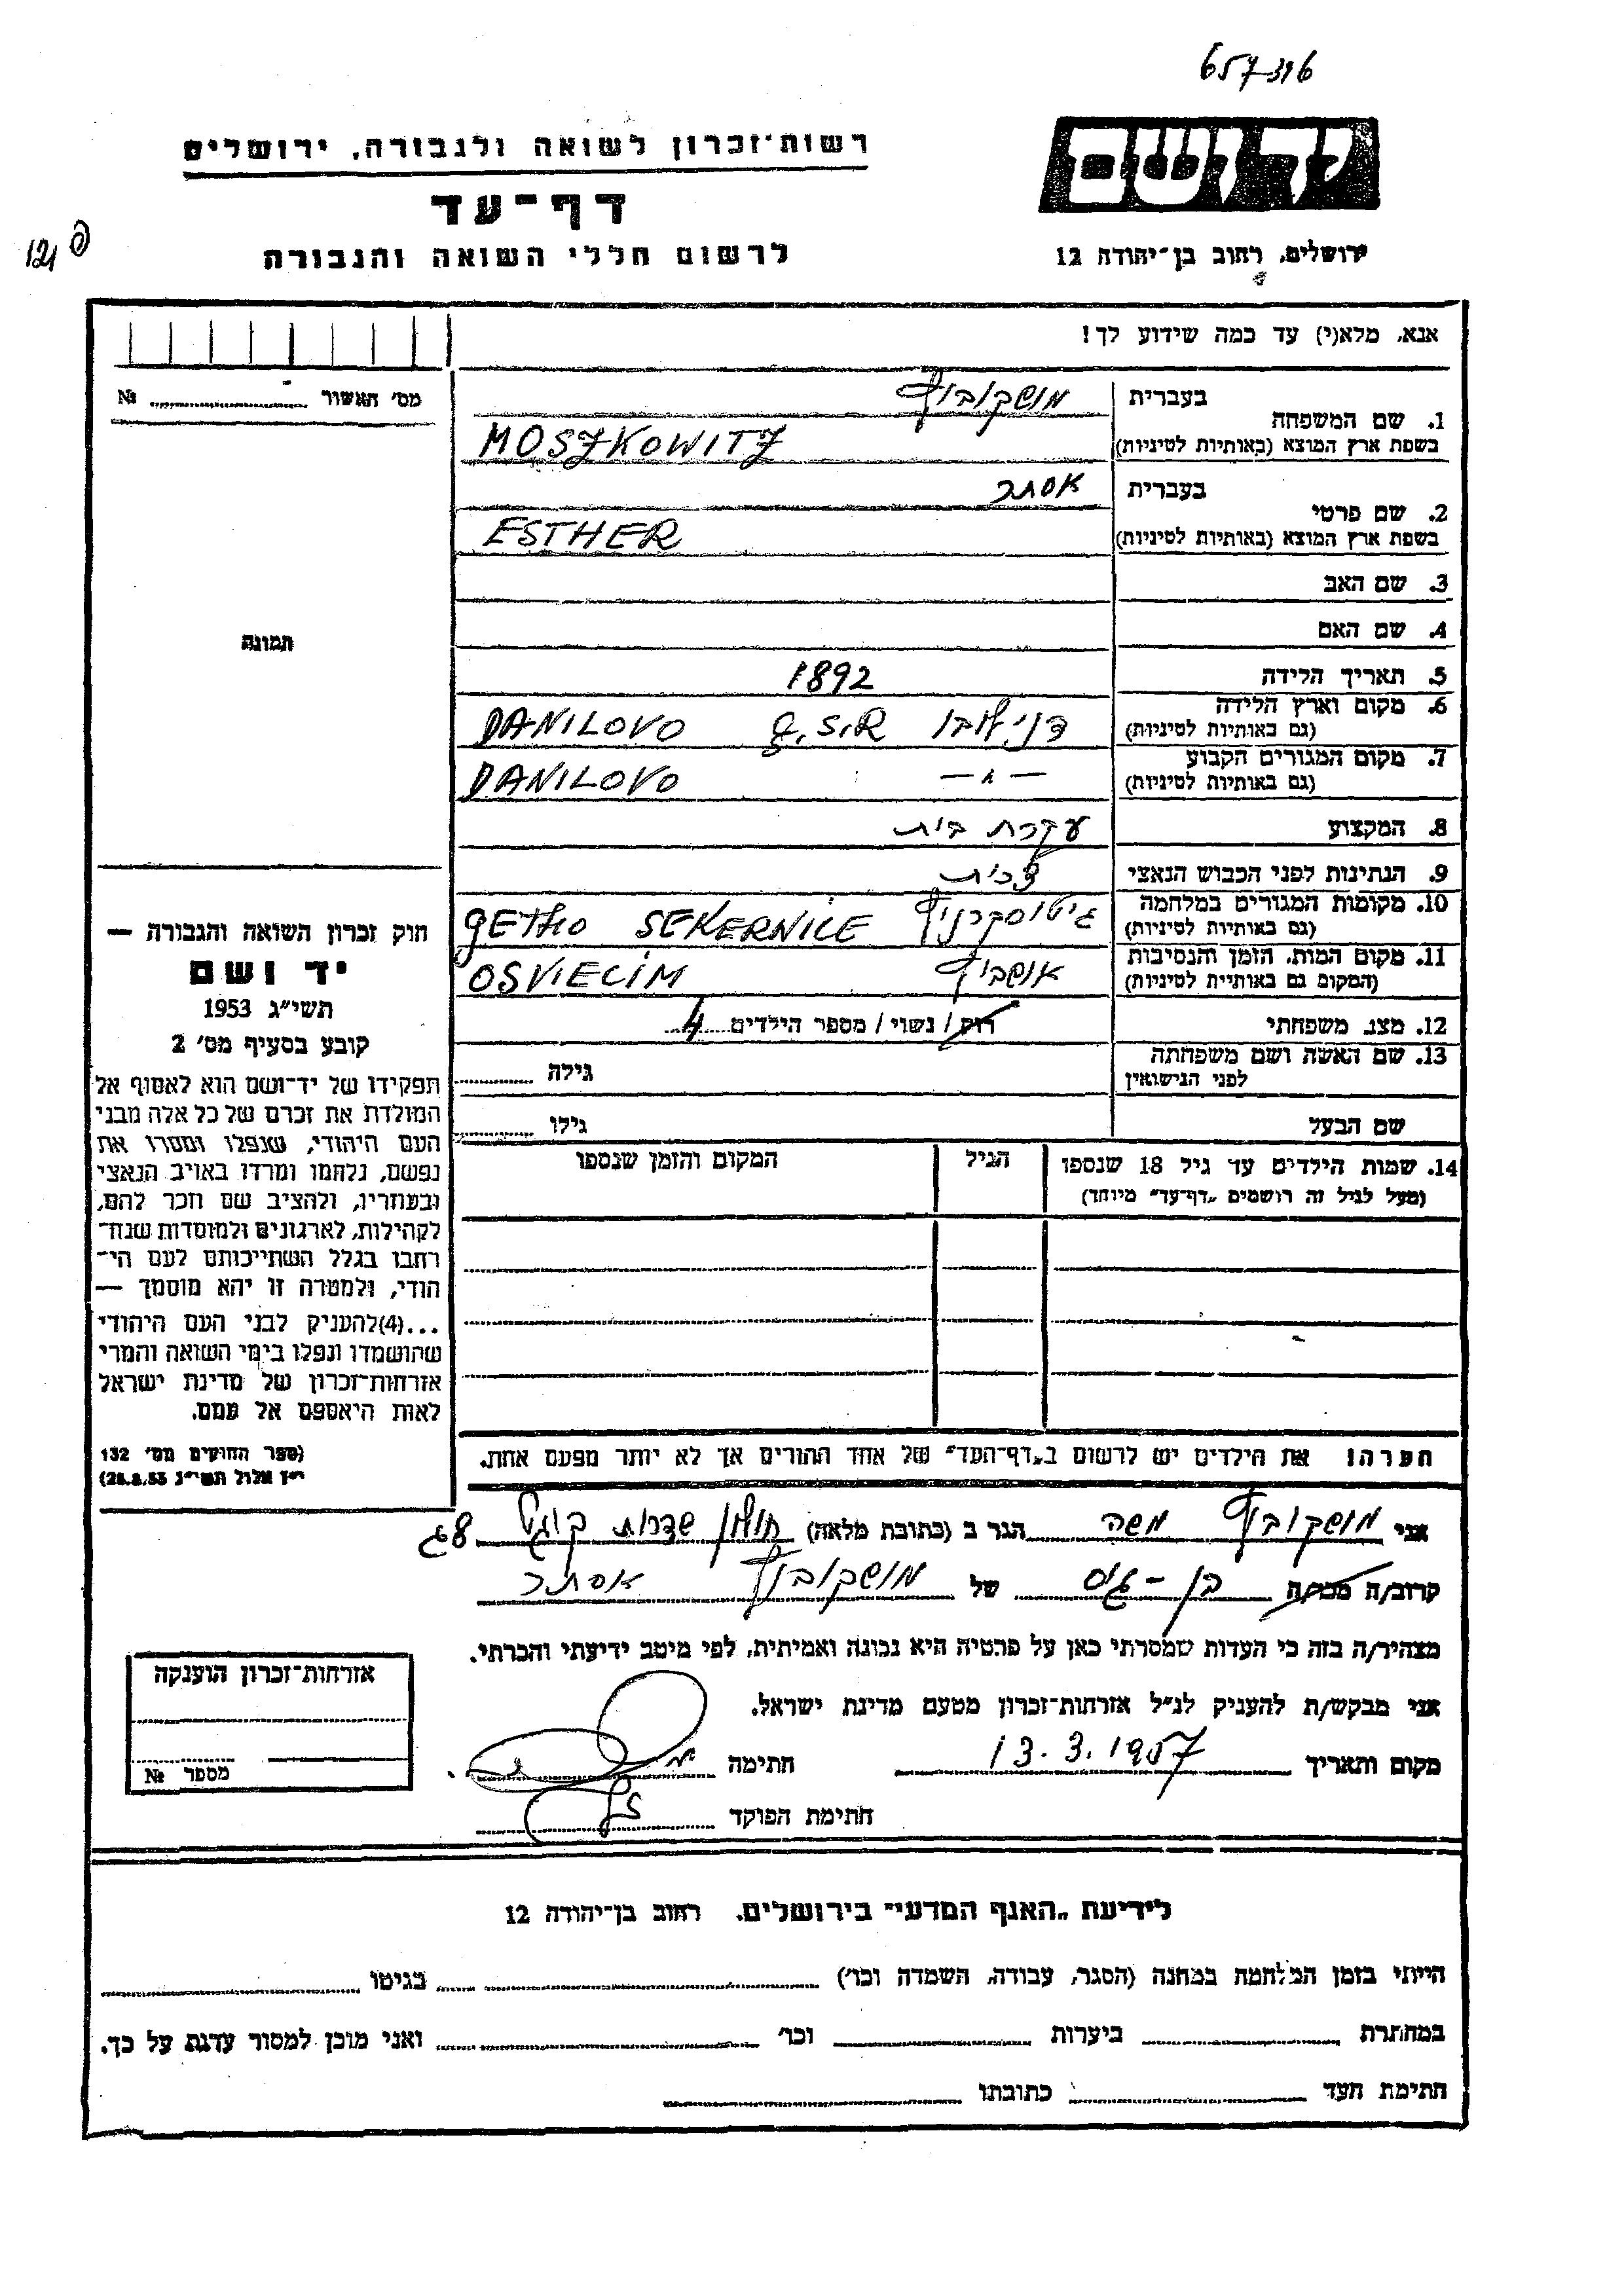 657316
רשות־זכרון לשואה ולגבורה, ירושלים
יד ושם
דף־עד
לרשום חללי השואה והגבורה
ירושלים, רחוב בן־יהודה 12
121
אנא, מלא(י) עד כמה שידוע לך!
מס׳ האשור № 
1. שם המשפחה
בעברית מושקוביץ
בשפת ארץ המוצא (באותיות לטיניות) MOSZKOWITZ
2. שם פרטי
בעברית אסתר
בשפת ארץ המוצא (באותיות לטיניות) ESTHER
3. שם האב
4. שם האם
תמונה
5. תאריך הלידה 1892
6. מקום וארץ הלידה
(גם באותיות לטיניות) דנילובו Z.S.R DANILOVO
7. מקום המגורים הקבוע
(גם באותיות לטיניות) — ״ — DANILOVO
8. המקצוע עקרת בית
9. הנתינות לפני הכבוש הנאצי צ׳כית
10. מקומות המגורים במלחמה
(גם באותיות לטיניות) גיטו סקרניץ GETHO SEKERNICE
11. מקום המות, הזמן והנסיבות
(המקום גם באותיות לטיניות) אושביץ OSVIECIM
12. מצב משפחתי רוק / נשוי / מספר הילדים 4
13. שם האשה ושם משפחתה
לפני הנישואין גילה
שם הבעל גילו
14. שמות הילדים עד גיל 18 שנספו הגיל המקום והזמן שנספו
(מעל לגיל זה רושמים „דף־עד״ מיוחד)
חוק זכרון השואה והגבורה —
יד ושם
תשי״ג 1953
קובע בסעיף מס׳ 2
תפקידו של יד־ושם הוא לאסוף אל
המולדת את זכרם של כל אלה מבני
העם היהודי, שנפלו ומסרו את
נפשם, נלחמו ומרדו באויב הנאצי
ובעוזריו, ולהציב שם וזכר להם,
לקהילות, לארגונים ולמוסדות שנח־
רחבו בגלל השתייכותם לעם הי־
הודי, ולמטרה זו יהא מוסמך —
...(4)להעניק לבני העם היהודי
שהושמדו ונפלו בימי השואה והמרי
אזרחות־זכרון של מדינת ישראל
לאות היאספם אל עמם.
(ספר החוקים מס׳ 132
י״ז אלול תשי״ג 28.8.53)
הערה! את הילדים יש לרשום ב„דף־העד״ של אחד ההורים אך לא יותר מפעם אחת.
אני מושקוביץ משה הגר ב (כתובת מלאה) חולון שדרות קוגל
קרוב/ה מכר/ה בן-גיס של מושקוביץ אסתר
מצהיר/ה בזה כי העדות שמסרתי כאן על פרטיה היא נכונה ואמיתית, לפי מיטב ידיעתי והכרתי.
אני מבקש/ת להעניק לנ״ל אזרחות־זכרון מטעם מדינת ישראל.
מקום ותאריך 13.3.1957 חתימה
חתימת הפוקד
אזרחות־זכרון הוענקה
מספר №
לידיעת „האגף המדעי״ בירושלים, רחוב בן־יהודה 12
הייתי בזמן המלחמה במחנה (הסגר, עבודה, השמדה וכו׳) בגיטו
במחתרת ביערות וכו׳ ואני מוכן למסור עדות על כך.
חתימת העד כתובתו